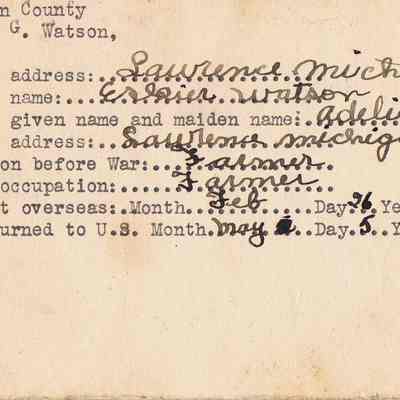 n County
G. Watson,
address:..Lawrence Mich
name:....Watson
given name and maiden name: Adeli
address:..Lawrence Michig
on before War:...Farmer..
occupation:......Farmer...
t overseas:.Month..Feb.....Day.26.Ye
urned to U.S. Month.May....Day.5..Y